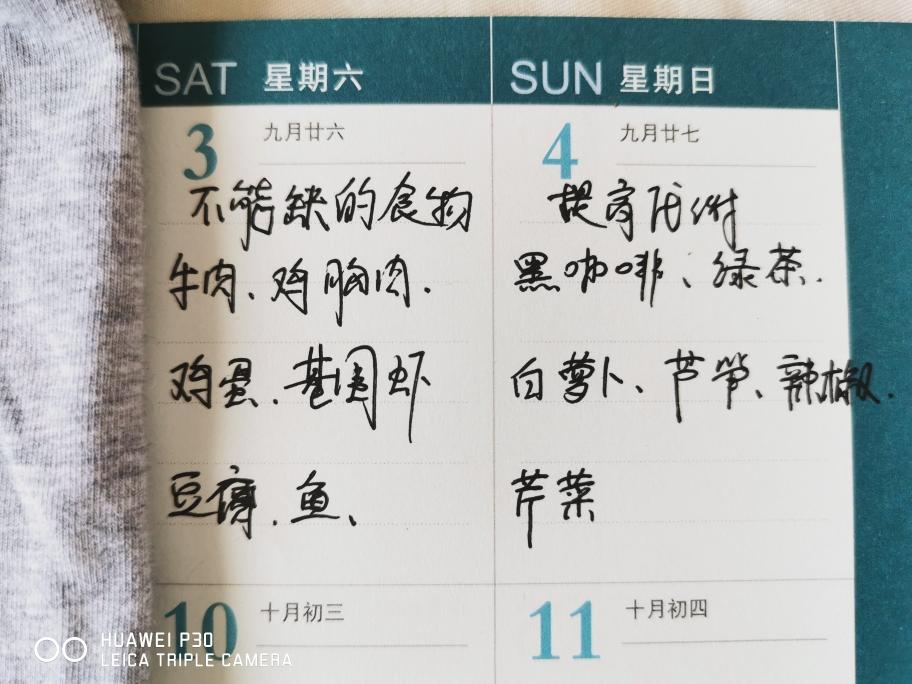 SAT 星期六
3 九月廿六
不能缺的食物
牛肉、鸡胸肉.
鸡蛋、基围虾
豆腐、鱼、
SUN 星期日
4 九月廿七
提高代谢
黑咖啡、绿茶.
白萝卜、芦笋、辣椒.
芹菜
10 十月初三
11 十月初四
HUAWEI P30
LEICA TRIPLE CAMERA